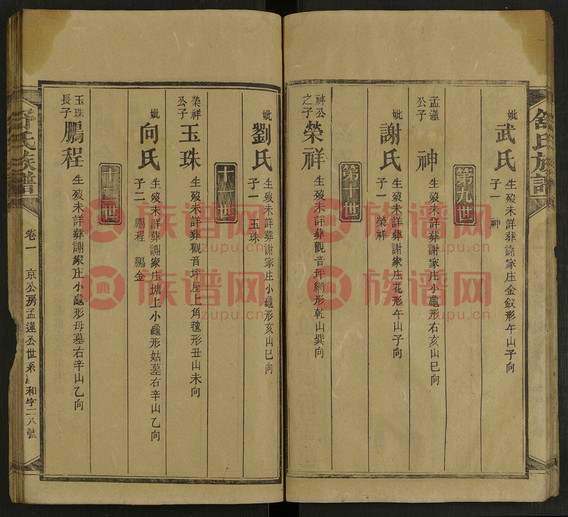 舒氏族譜
妣武氏 生歿未詳葬謝家庄金釵形午山子向
子一 神
第九世
孟蘧公子 神 生歿未詳葬謝家庄小龜形右亥山巳向
妣謝氏 生歿未詳葬謝家庄花形午山子向
子一 榮祥
第十世
神公之子 榮祥 生歿未詳葬觀音坪網形乾山巽向
妣劉氏 生歿未詳葬謝家庄小龜形亥山巳向
子一 玉珠
十一世
榮祥公子 玉珠 生歿未詳葬觀音坪庄上角毬形丑山未向
妣向氏 生歿未詳葬謝家庄塊上小龜形姑墓右辛山乙向
子二 鵬程 鵬金
十二世
玉珠長子 鵬程 生歿未詳葬謝家庄小龜形母墓右辛山乙向
舒氏族譜 卷一 京公房孟蘧公世系 和字二八號
族谱网
zupu.cn